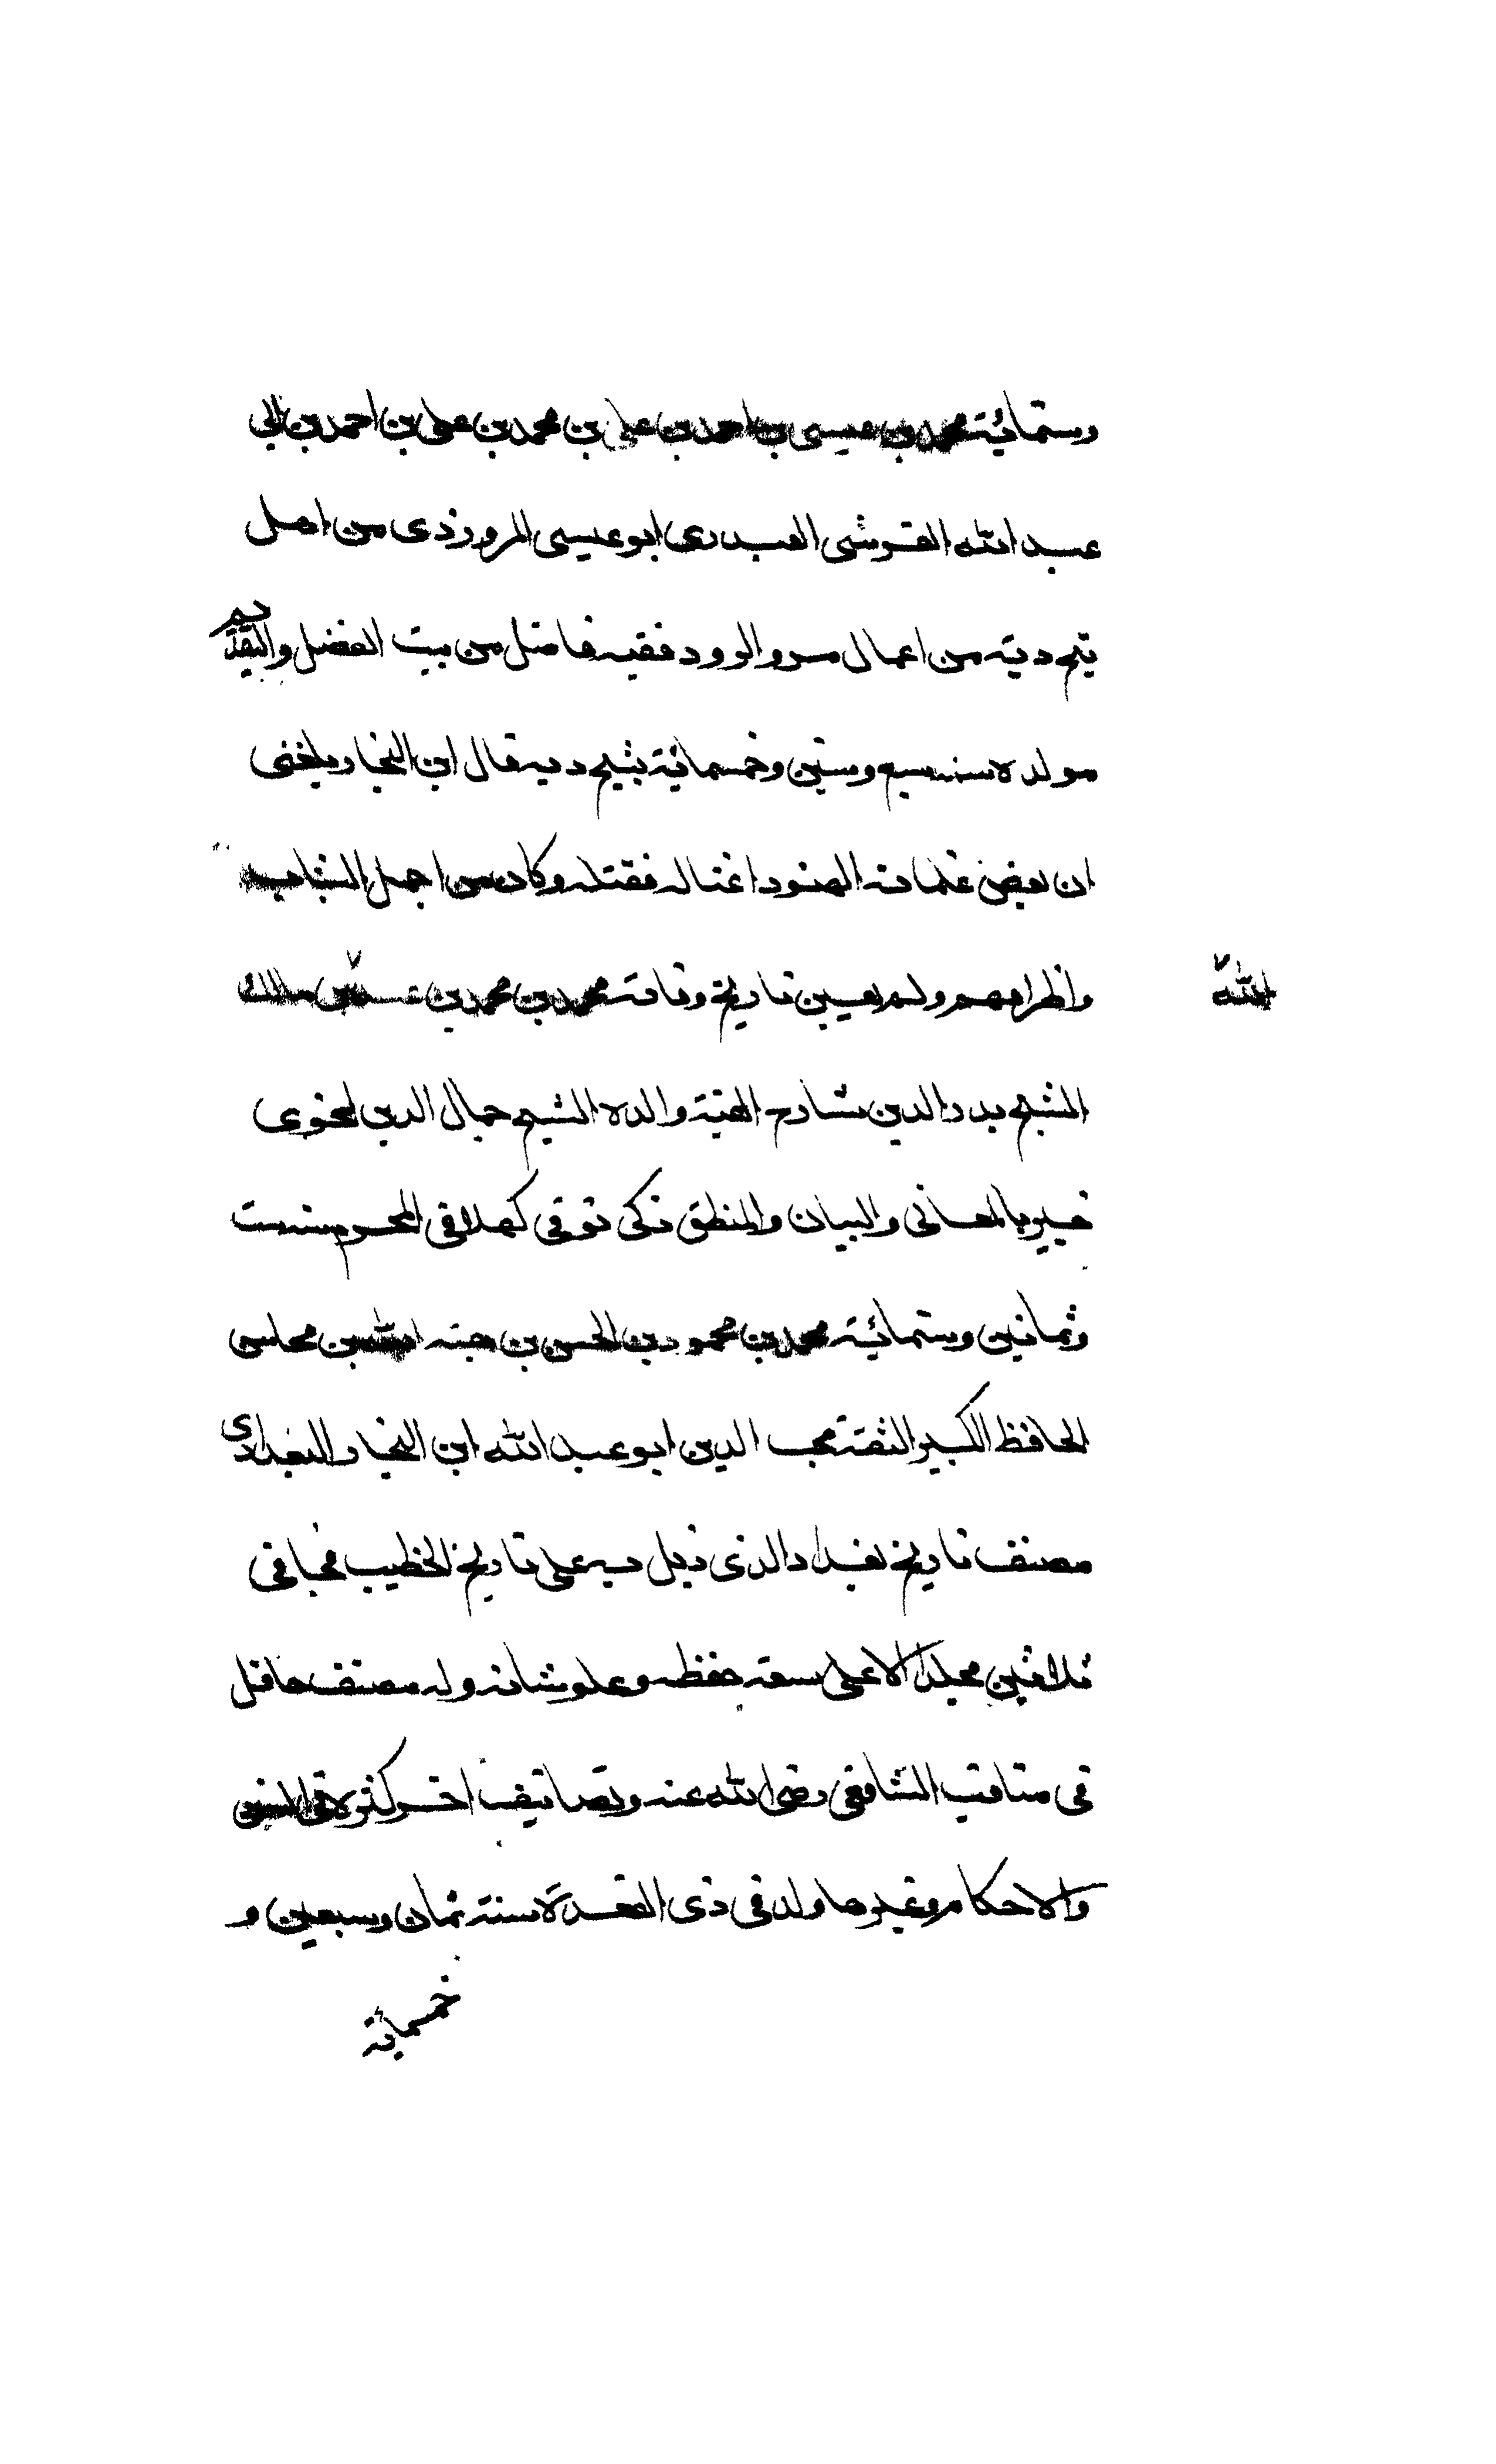 وستمائية محمد بن عيسى بن احمد بن على بن محمد بن على بن احمد بن ابى
عبد الله القرشى العبدرى ابو عيسى المروزذى من اهل
بنج ديه من اعمال مرو الرود فقيه فاضل من بيت الفضل والتقديم
مولده سنه سبع وستين وخمسمائية بثبنج ديه قال ابن النجار بلغنى
ان بعض غلمانه الهنود اغتاله فقتله وكان من اجمل الشباب
واظرافهم ولم يعين تاريخ وفاته محمد بن محمد بن عبد بن مالك
الله
الشيخ بدر الدين شارح الفية والده الشيخ جمال الدين نحوى
خبير بالمعانى والبيان والمنطق ذكى توفى كهلا فى المحرم سنه ست
وثمانين وستمائية محمد بن محمود بن الحسن بن هبة الله بن محاسن
الحافظ الكبير الثقة محب الدين ابو عبد الله ابن النجار البغدادى
مصنف تاريخ بغداد الذى ذيل به على تاريخ الخطيب فجا فى
ثلاثين مجلدا دالا على سعة حفظه وعلو شانه وله مصنف حافل
فى مناقب الشافعى رضى الله عنه وتصانيف اخر كثيرة فى السنن
والاحكام وغيرها ولد فى ذى القعدة سنة ثمان وسبعين و
خمسمائة